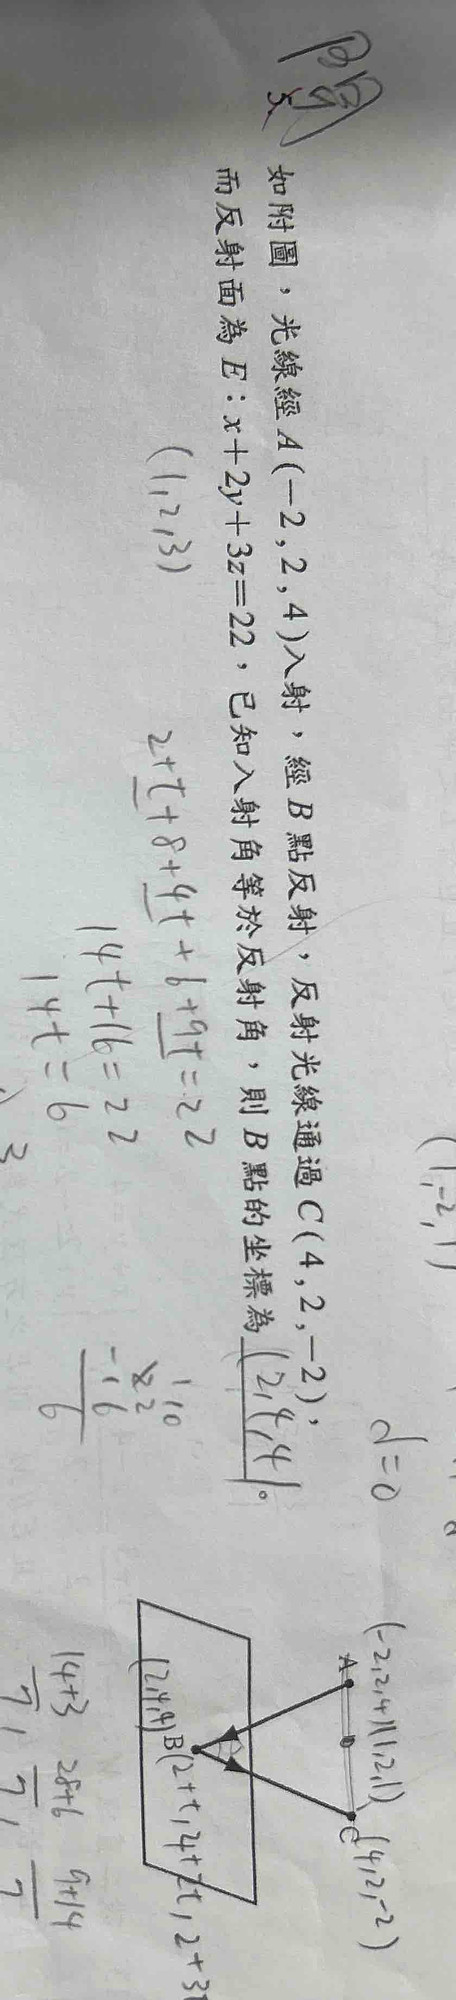 問
5.
如附圖，光線經 A(−2,2,4)入射，經 B 點反射，反射光線通過 C(4,2,−2)，
而反射面為 E：x+2y+3z=22，已知入射角等於反射角，則 B 點的坐標為 (2,4,4)。
(1,2,3)
2+t+8+4t+6+9t=22
14t+16=22
14t=6
3
1 10
22
-16
6
(1,-2,1)
d=0
(-2,2,4)
(1,2,1)
(4,2,-2)
A
C
B
(2,4,4)
(2+t,4+2t,2+3t
14+3
7,
28+6
7,
9+14
7